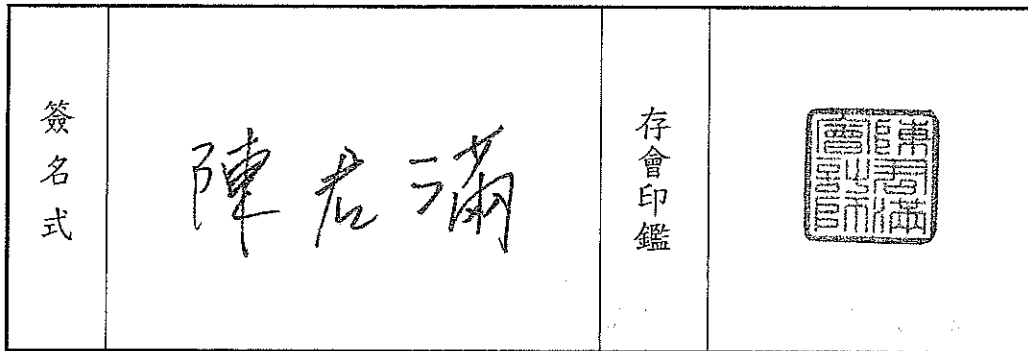 簽名式
陳君滿
存會印鑑
陳君滿會計師